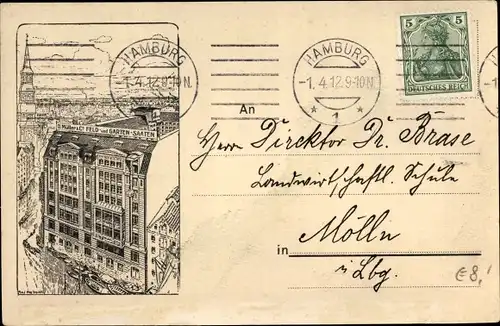 HAMBURG
-1.4.12.9-10N.
HAMBURG
-1.4.12.9-10N.
* 1 *
5 5
DEUTSCHES REICH
FELD- und GARTEN-SAATEN
An
Herrn Direktor Dr. Brase
Landwirtschaftl. Schule
in Mölln
i. Lbg.
€ 8,-